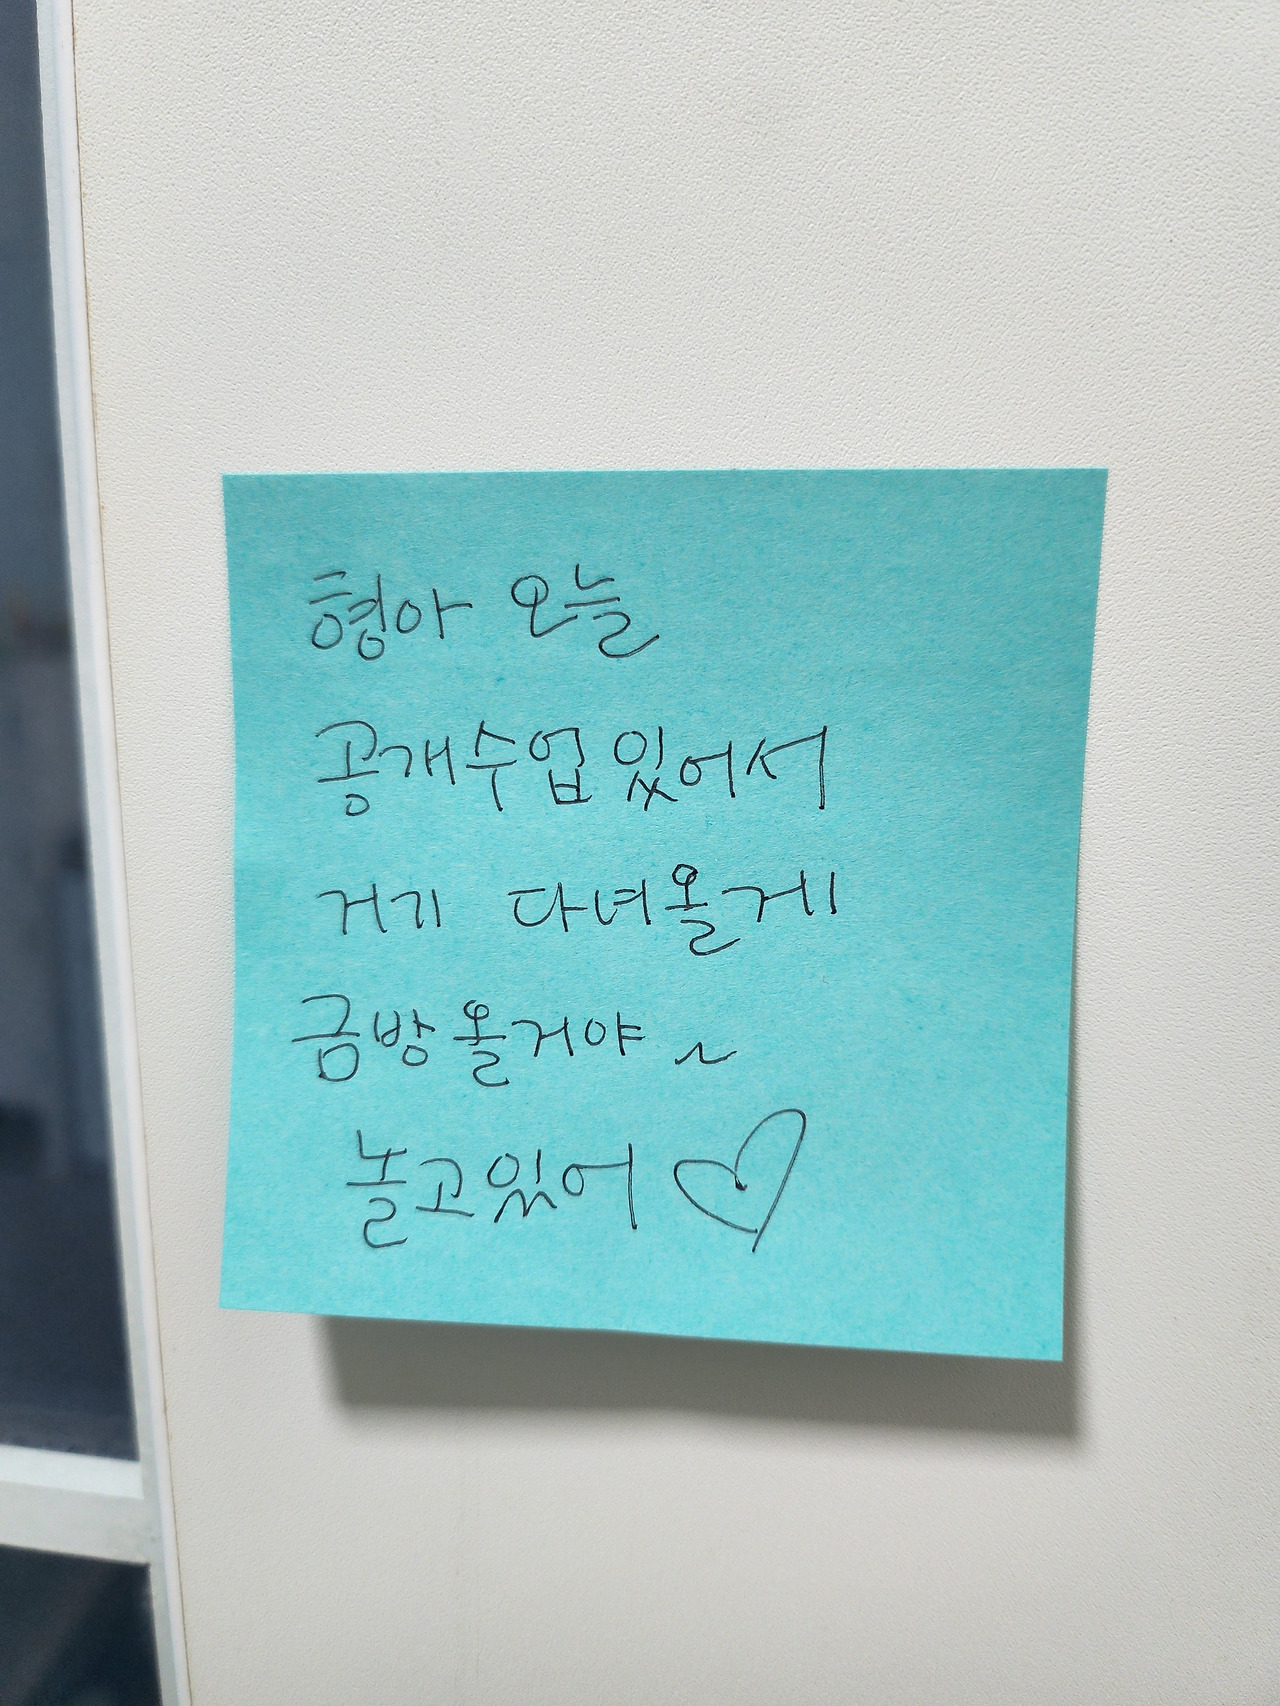 형아 오늘
공개수업 있어서
거기 다녀올게
금방 올거야 ~
놀고있어 ♡